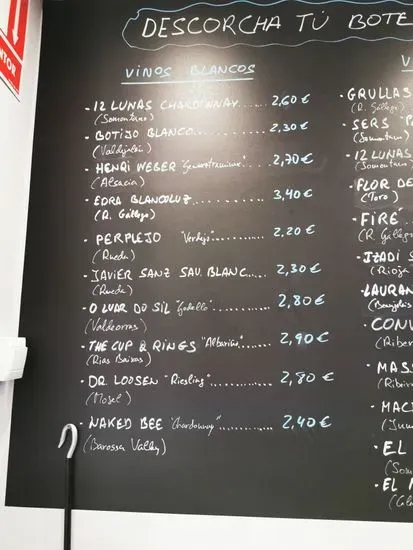 NTOR
DESCORCHA TÚ BOTE
VINOS BLANCOS
- 12 LUNAS CHARDONNAY...... 2,60 €
(Somontano)
- BOTIJO BLANCO............ 2,30 €
(Valdejalón)
- HENRI WEBER "Gewurztraminer" 2,70 €
(Alsacia)
- EDRA BLANCOLUZ........... 3,40 €
(R. Gállego)
- PERPLEJO "Verdejo" 2,20 €
(Rueda)
- JAVIER SANZ SAU. BLANC... 2,30 €
(Rueda)
- O LUAR DO SIL "Godello"... 2,80 €
(Valdeorras)
- THE CUP & RINGS "Albariño"... 2,90 €
(Rias Baixas)
- DR. LOOSEN "Riesling"...... 2,80 €
(Mosel)
- NAKED BEE "Chardonnay"...... 2,40 €
(Barossa Valley)
V
- GRULLAS
(R. Gállego)
- SERS "P
(Somontano
- 12 LUNAS
(Somontan
- FLOR DE
(Toro)
- FIRÉ
(R. Gálleg
- IZADI S
(Rioja
- LAURAN
(Beaujolais
- CONV
(Riber
- MAS
(Ribeir
- MAC
(Jum
- EL
- EL M